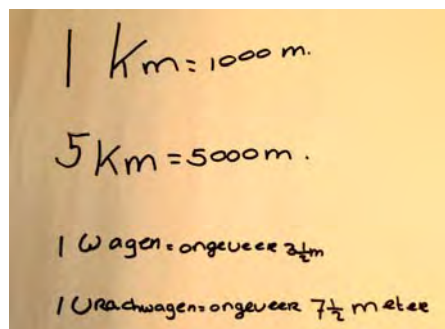 1 Km = 1000 m.
5 Km = 5000 m.
1 Wagen = ongeveer 3½m
1 Vrachwagen = ongeveer 7½ meter